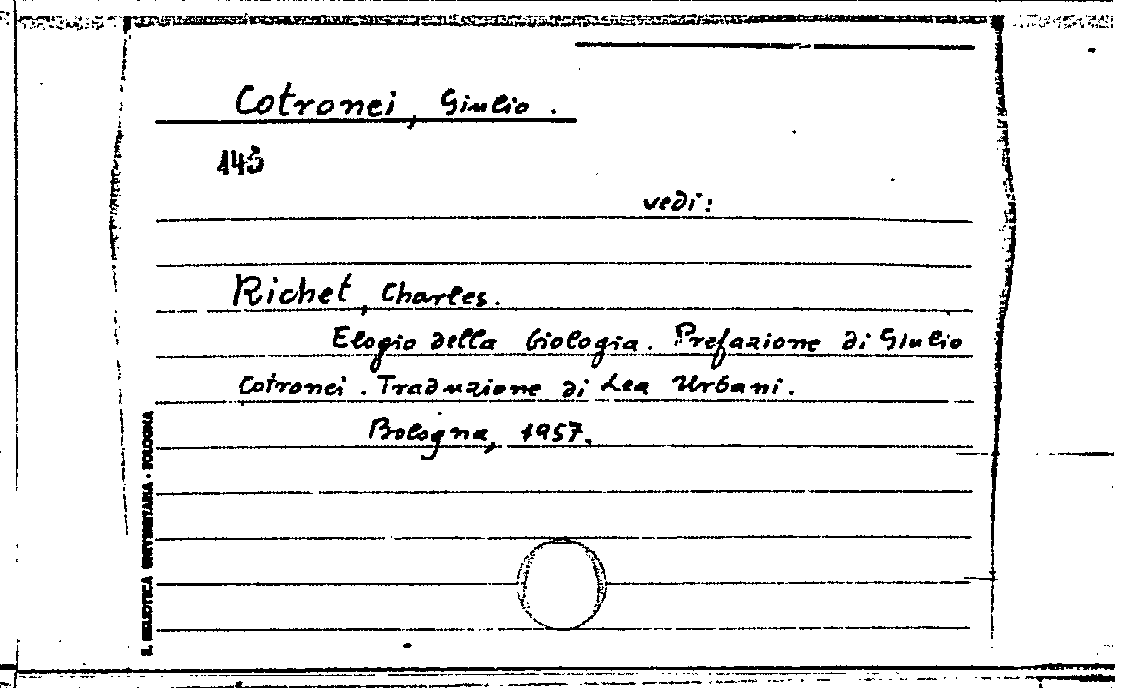 Cotronei, Giulio.
145
vedi:
Richet, Charles.
Elogio della biologia. Prefazione di Giulio
Cotronei. Traduzione di Lea Urbani.
Bologna, 1957.
BIBLIOTECA UNIVERSITARIA - BOLOGNA